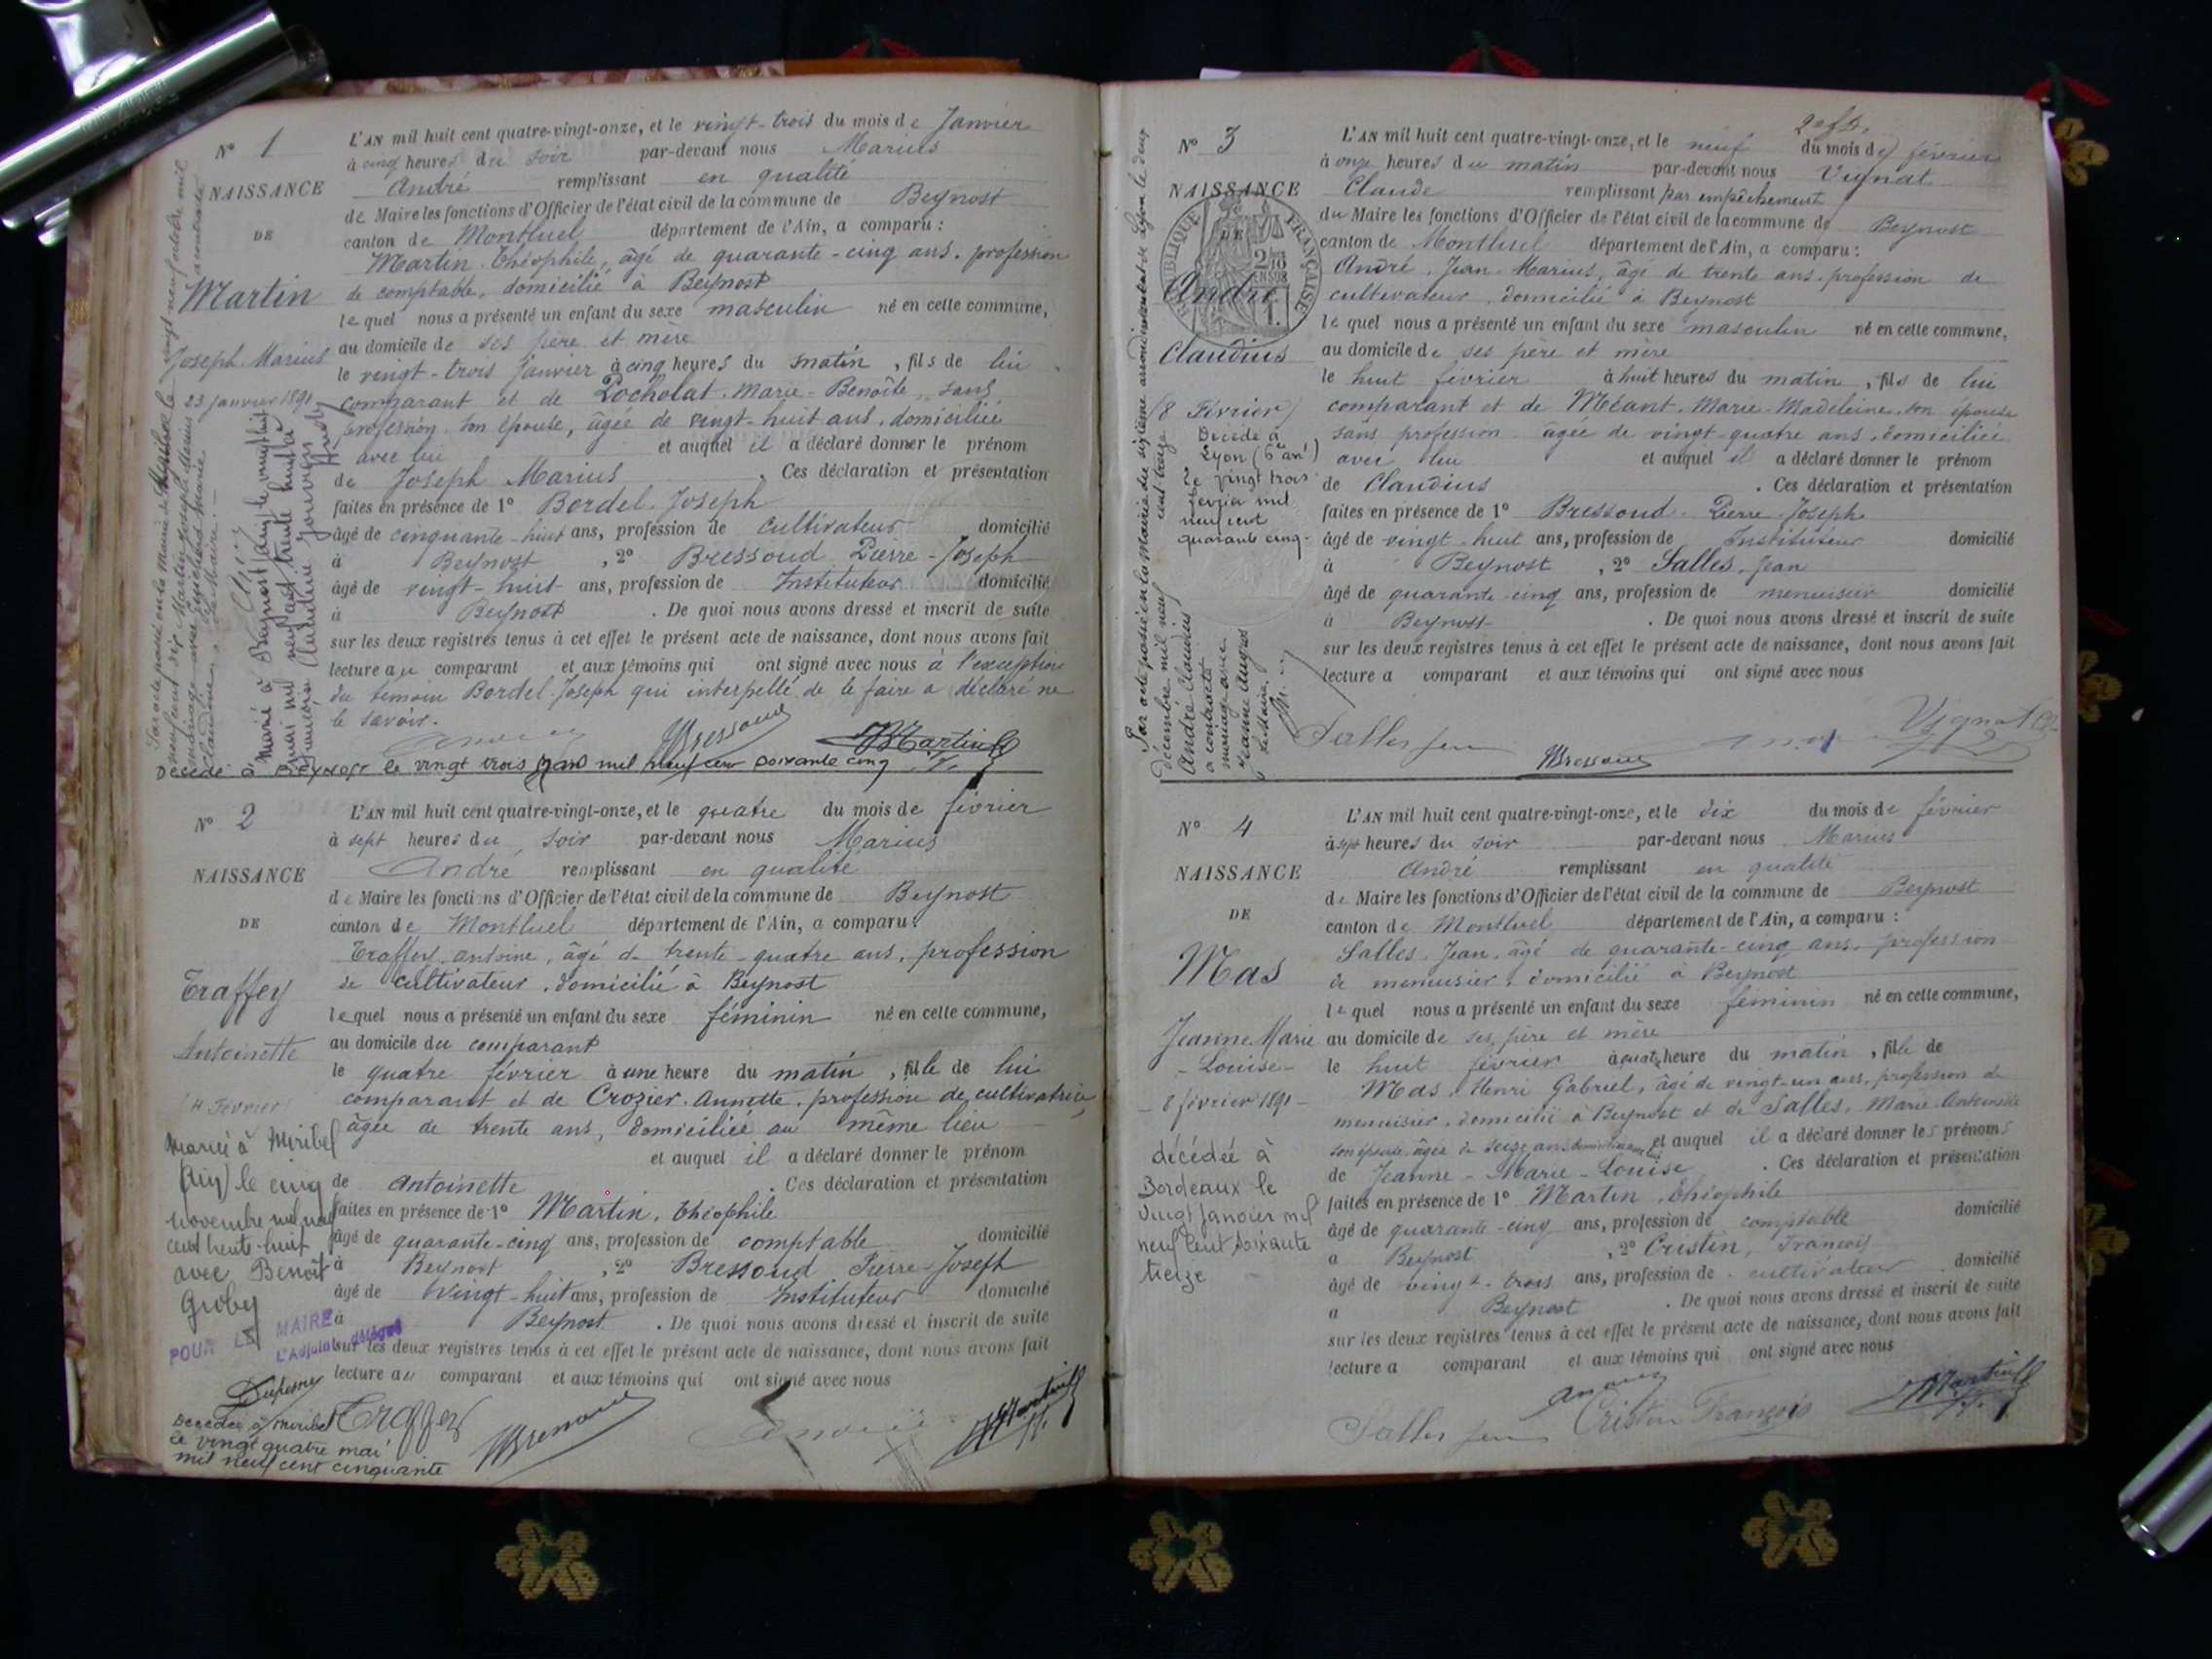 N° 1
NAISSANCE
DE
Martin
Joseph Marius
23 janvier 1891
L'AN mil huit cent quatre-vingt-onze, et le vingt-trois du mois de Janvier
à cinq heures du soir par-devant nous Marius
André remplissant en qualité
de Maire les fonctions d'Officier de l'état civil de la commune de Beynost
canton de Montluel département de l'Ain, a comparu :
Martin Théophile, âgé de quarante-cinq ans, profession
de comptable, domicilié à Beynost
lequel nous a présenté un enfant du sexe masculin né en cette commune,
au domicile de ses père et mère
le vingt-trois janvier à cinq heures du matin, fils de lui
comparant et de Pocholat Marie-Benoîte, sans
profession son épouse, âgée de vingt-huit ans, domiciliée
avec lui et auquel il a déclaré donner le prénom
de Joseph Marius. Ces déclaration et présentation
faites en présence de 1° Bordel Joseph
âgé de cinquante-huit ans, profession de cultivateur domicilié
à Beynost, 2° Bressoud Pierre-Joseph
âgé de vingt-huit ans, profession de Instituteur domicilié
à Beynost. De quoi nous avons dressé et inscrit de suite
sur les deux registres tenus à cet effet le présent acte de naissance, dont nous avons fait
lecture au comparant et aux témoins qui ont signé avec nous à l'exception
du témoin Bordel Joseph qui interpellé de le faire a déclaré ne
le savoir.
Bressoud Martin
Décédé à Beynost le vingt trois mil neuf cent soixante cinq
Marié à Beynost (Ain) le vingt huit
mai mil neuf cent trente huit à
Françoise Claudine Jouvray
N° 2
NAISSANCE
DE
Traffey
Antoinette
4 Février
Mariée à Miribel
(Ain) le cinq
novembre mil neuf
cent trente-huit
avec Benoît
Groby
POUR LE MAIRE
L'Adjoint délégué
Décédée à Miribel
le vingt quatre mai
mil neuf cent cinquante
L'AN mil huit cent quatre-vingt-onze, et le quatre du mois de février
à sept heures du soir par-devant nous Marius
André remplissant en qualité
de Maire les fonctions d'Officier de l'état civil de la commune de Beynost
canton de Montluel département de l'Ain, a comparu :
Traffey Antoine, âgé de trente-quatre ans, profession
de cultivateur, domicilié à Beynost
lequel nous a présenté un enfant du sexe féminin né en cette commune,
au domicile du comparant
le quatre février à une heure du matin, fille de lui
comparant et de Crozier Annette, profession de cultivatrice,
âgée de trente ans, domiciliée au même lieu
et auquel il a déclaré donner le prénom
de Antoinette. Ces déclaration et présentation
faites en présence de 1° Martin, Théophile
âgé de quarante-cinq ans, profession de comptable domicilié
à Beynost, 2° Bressoud Pierre Joseph
âgé de vingt-huit ans, profession de Instituteur domicilié
à Beynost. De quoi nous avons dressé et inscrit de suite
sur les deux registres tenus à cet effet le présent acte de naissance, dont nous avons fait
lecture au comparant et aux témoins qui ont signé avec nous
Traffey Bressoud Martin
N° 3
NAISSANCE
DE
André
Claudius
(8 Février)
Décédé à
Lyon (6e arrt)
le vingt trois
février mil
neuf cent
quarante cinq.
RÉPUBLIQUE FRANÇAISE
L'AN mil huit cent quatre-vingt-onze, et le neuf du mois de février
à onze heures du matin par-devant nous Vignat
Claude remplissant par empêchement
du Maire les fonctions d'Officier de l'état civil de la commune de Beynost
canton de Montluel département de l'Ain, a comparu :
André, Jean Marius, âgé de trente ans, profession de
cultivateur, domicilié à Beynost
lequel nous a présenté un enfant du sexe masculin né en cette commune,
au domicile de ses père et mère
le huit février à huit heures du matin, fils de lui
comparant et de Méant Marie-Madeleine, son épouse
sans profession âgée de vingt-quatre ans, domiciliée
avec lui et auquel il a déclaré donner le prénom
de Claudius. Ces déclaration et présentation
faites en présence de 1° Bressoud Pierre Joseph
âgé de vingt-huit ans, profession de Instituteur domicilié
à Beynost, 2° Salles, Jean
âgé de quarante-cinq ans, profession de menuisier domicilié
à Beynost. De quoi nous avons dressé et inscrit de suite
sur les deux registres tenus à cet effet le présent acte de naissance, dont nous avons fait
lecture a comparant et aux témoins qui ont signé avec nous
Salles Jean Bressoud Vignat
N° 4
NAISSANCE
DE
Mas
Jeanne Marie
- Louise -
- 8 février 1891 -
décédée à
Bordeaux le
vingt janvier mil
neuf cent soixante
treize
L'AN mil huit cent quatre-vingt-onze, et le dix du mois de février
à sept heures du soir par-devant nous Marius
André remplissant en qualité
de Maire les fonctions d'Officier de l'état civil de la commune de Beynost
canton de Montluel département de l'Ain, a comparu :
Salles, Jean, âgé de quarante-cinq ans, profession
de menuisier, domicilié à Beynost
lequel nous a présenté un enfant du sexe féminin né en cette commune,
au domicile de ses père et mère
le huit février à quatre heure du matin, fille de
Mas, Henri Gabriel, âgé de vingt-un ans, profession de
menuisier, domicilié à Beynost et de Salles, Marie Antoinette
son épouse, âgée de seize ans et auquel il a déclaré donner les prénoms
de Jeanne-Marie-Louise. Ces déclaration et présentation
faites en présence de 1° Martin, Théophile
âgé de quarante-cinq ans, profession de comptable domicilié
a Beynost, 2° Cristin, François
âgé de vingt-trois ans, profession de cultivateur domicilié
a Beynost. De quoi nous avons dressé et inscrit de suite
sur les deux registres tenus à cet effet le présent acte de naissance, dont nous avons fait
lecture a comparant et aux témoins qui ont signé avec nous
Salles Jean Cristin François Martin